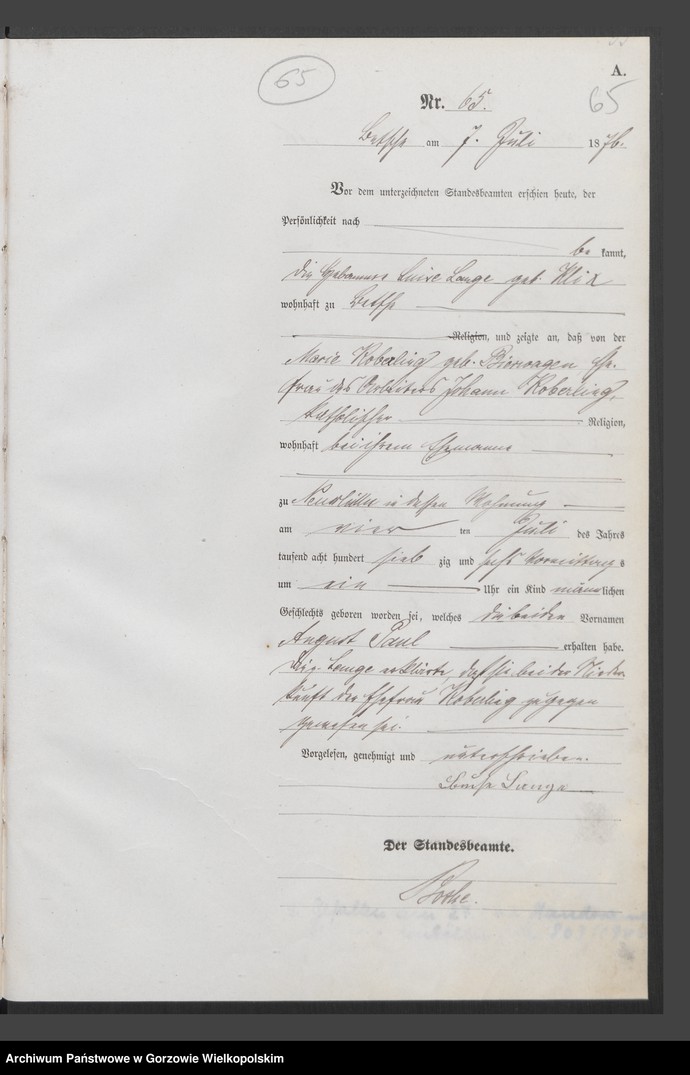 65
A.
Nr. 65.
65
Betsche am 7. Juli 1876.
Vor dem unterzeichneten Standesbeamten erschien heute, der
Persönlichkeit nach
be kannt,
die Hebamme Luise Lange geb. Klix
wohnhaft zu Betsche
Religion, und zeigte an, daß von der
Marie Koberling geb. Bierwagen Ehe-
frau des Arbeiters Johann Koberling,
katholischer Religion,
wohnhaft bei ihrem Ehemanne
zu in dessen Wohnung
am vier ten Juli des Jahres
tausend acht hundert sieb zig und sechs Vormittag s
um ein Uhr ein Kind männlichen
Geschlechts geboren worden sei, welches die beiden Vornamen
August Paul erhalten habe.
Die Lange erklärte, daß sie bei der Nieder-
kunft der Ehefrau Koberling zugegen
gewesen sei.
Vorgelesen, genehmigt und unterschrieben.
Luise Lange
Der Standesbeamte.
Archiwum Państwowe w Gorzowie Wielkopolskim